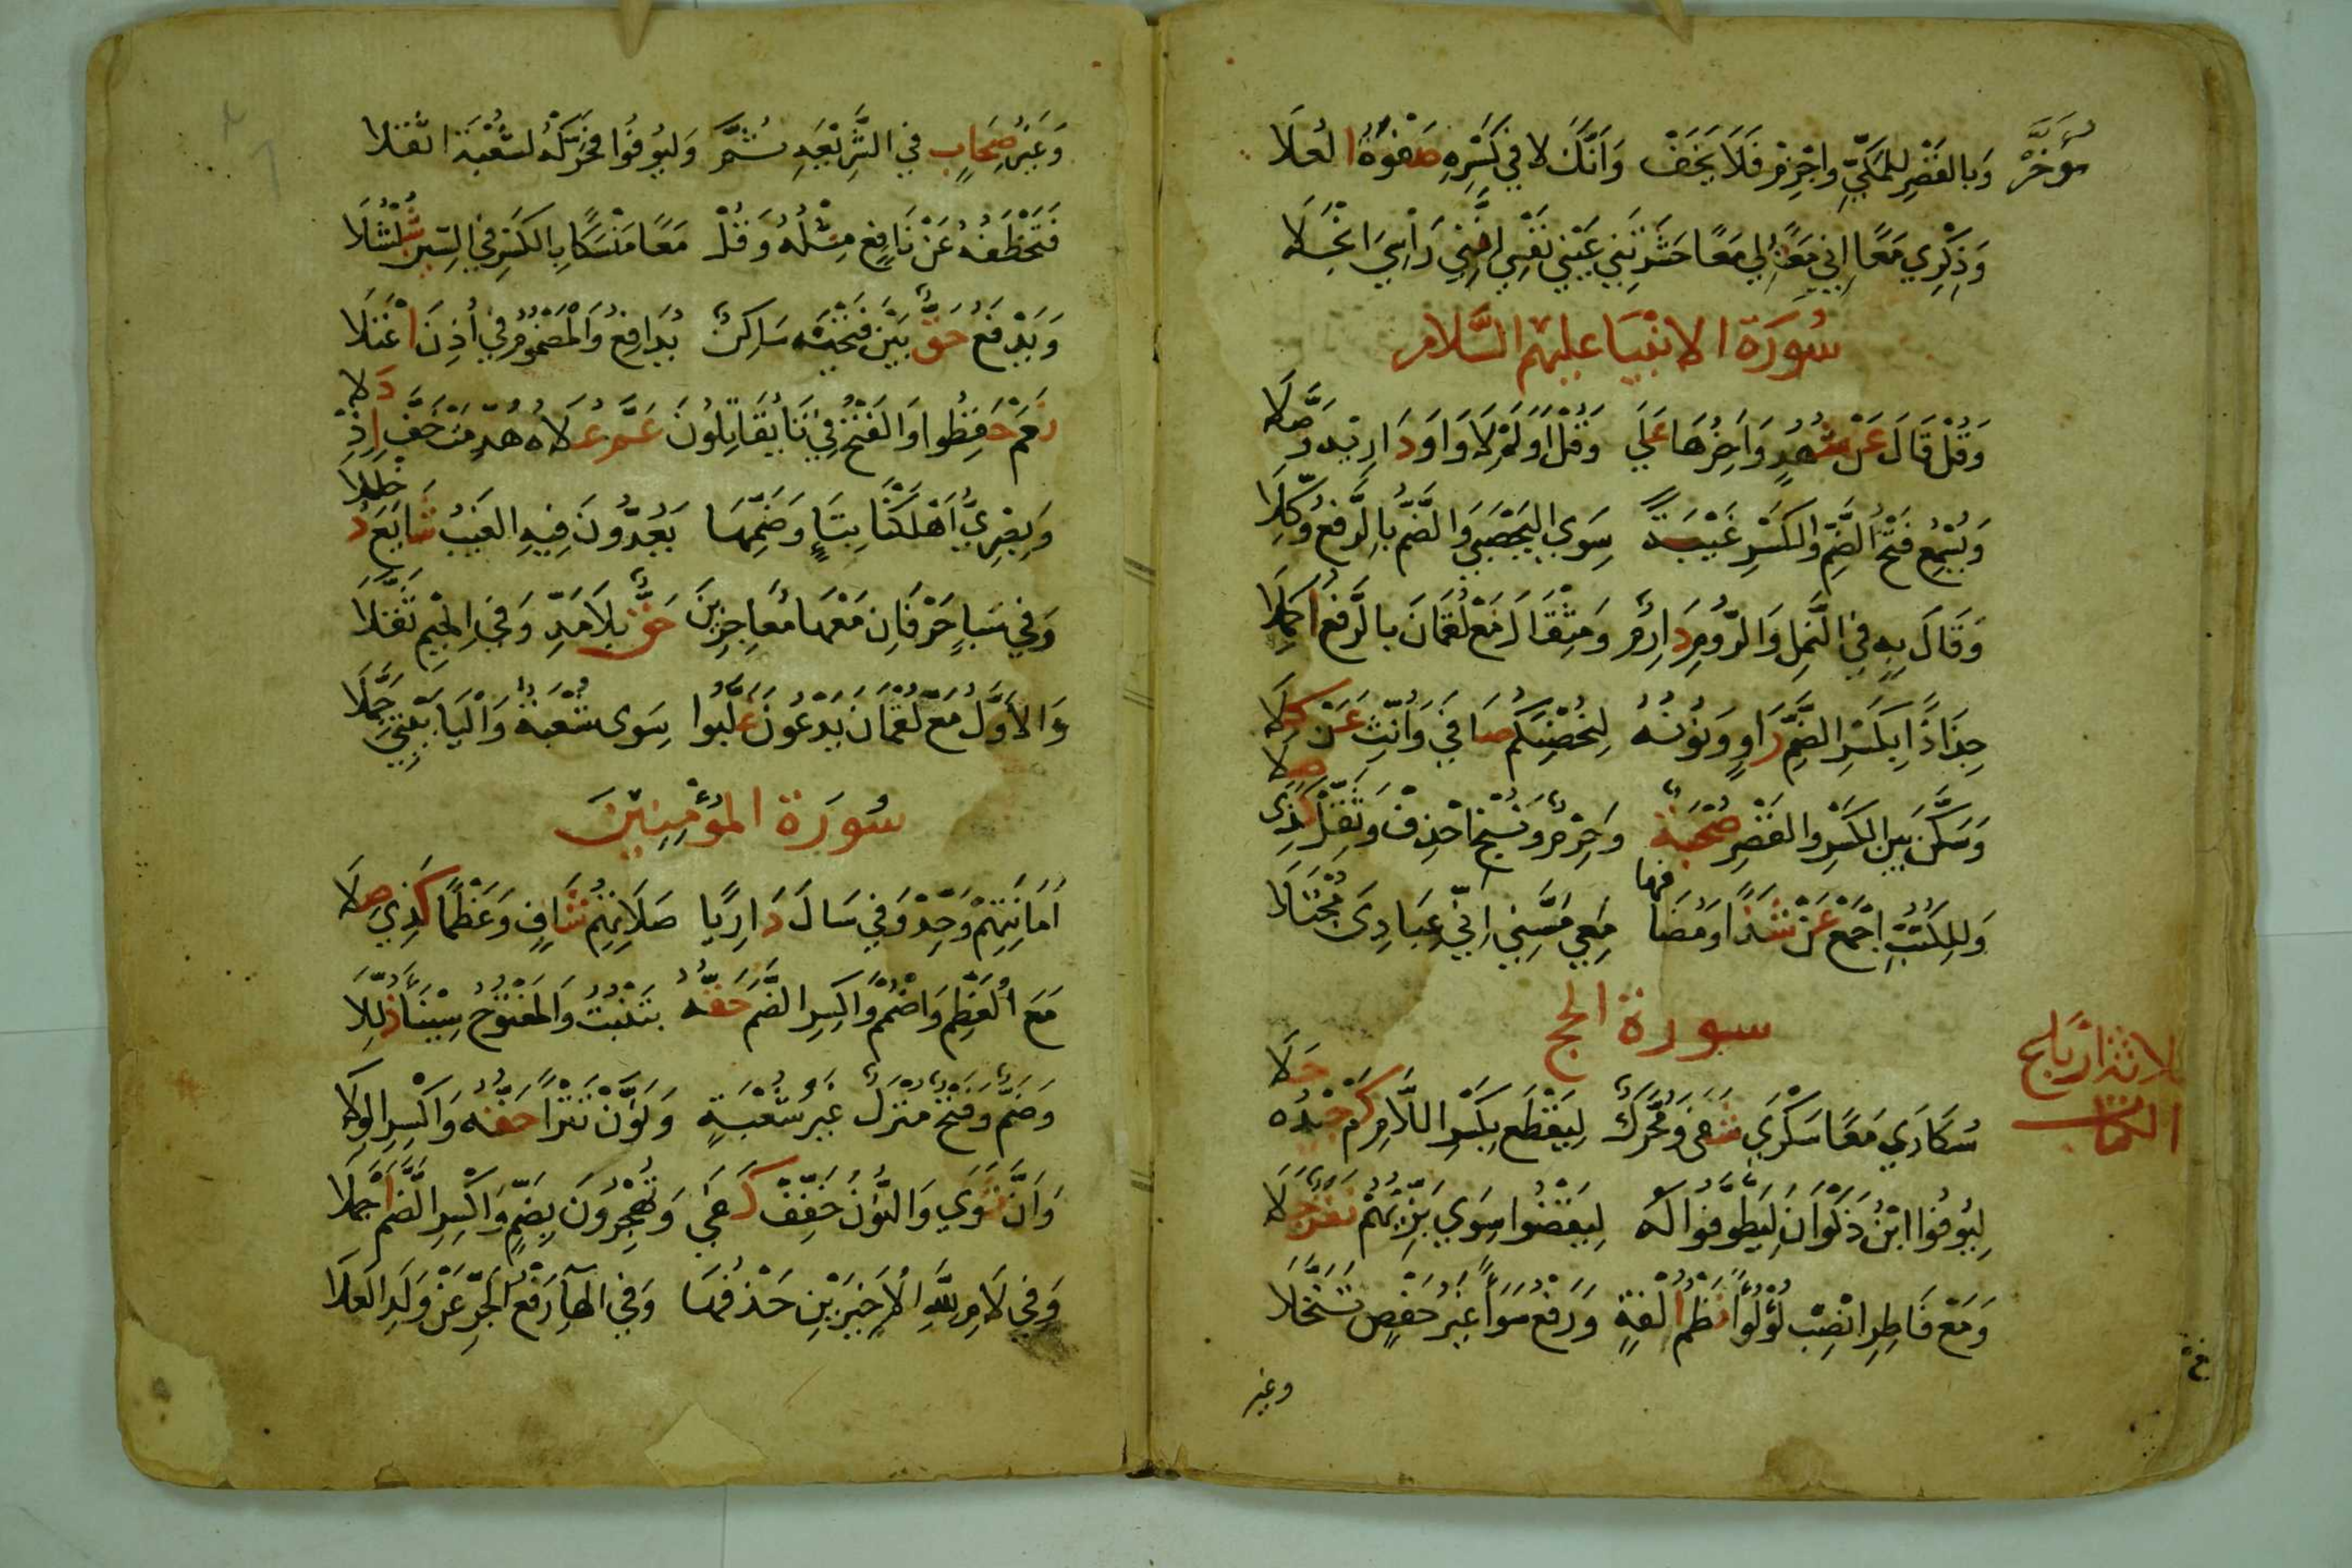 مُؤَخَّرْ
وَبِالقَصْرِ لِلمَكِّيِّ وَاجْزِمْ فَلَا يَخَفْ وَأَنَّكَ لَا فِي كَسْرِهِ صَفْوَةُ العُلَا
وَذِكْرِي مَعًا إِنِّي مَعًا لِي مَعًا حَشَرْتَنِي عَيْنِي نَفْسِي إِنَّنِي رَأْسِيَ انْجَلَا
سُورَة الانبيَا عليهم السَّلام
وَقُلْ قَالَ عَنْ شُهْدٍ وَآخِرُهَا عَلَي وَقُلْ أَوَلَمْ لَا وَاوَ دَارِيهِ وَصَّلَا
وَتُسْمِعُ فَتْحُ الضَّمِّ وَالكَسْرِ غَيْبَةً سِوَي اليَحْصُبِي وَالضَّمُّ بِالرَّفْعِ وُكِّلَا
وَقَالَ بِهِ فِي النَّمْلِ وَالرُّومِ دَارِمٌ وَمِثْقَالَ مَعْ لُقْمَانَ بِالرَّفْعِ أُكْمِلَا
جِذَاذًا بِكَسْرِ الضَّمِّ رَاوٍ وَنُونُهُ لِتُحْصِنَكُمْ صَافَي وَأُنِّثَ عَنْ كِلَا
وَسَكَّنَ بَيْنَ الكَسْرِ وَالقَصْرِ صُحْبَةٌ وَحِرْمٌ وَنُنْجِي احْذِفْ وَثَقِّلْ كَذِي صِلَا
وَلِلكُتُبِ اجْمَعْ عَنْ شَذًا وَمُضَافُهَا مَعِي مَسَّنِي إِنِّي عِبَادِيَ مُجْتَلَا
سورة الحج
سُكَارَي مَعًا سَكْرَي شَفَى وَمُحَرَّكٌ لِيَقْطَعْ بِكَسْرِ اللَّامِ كَمْ جِيدُهُ حَلَا
لِيُوفُوا ابْنُ ذَكْوَانَ لِيَطَّوَّفُوا لَهُ لِيَقْضُوا سِوَي بَزِّيِّهِمْ نَفَرٌ جَلَا
وَمَعْ فَاطِرَ انْصِبْ لُؤْلُؤًا نَظْمُ أُلْفَةٍ وَرَفْعُ سَوَاءً غَيْرُ حَفْصٍ تَنَخَّلَا
وغير
وَغَيْرُ صِحَابٍ فِي الشَّرِيعَةِ ثُمَّ وَلْيُوفُوا فَحَرِّكْهُ لِشُعْبَةَ اثْقَلَا
فَتَخْطَفُهُ عَنْ نَافِعٍ مِثْلُهُ وَقُلْ مَعًا مَنْسَكًا بِالكَسْرِ فِي السِّينِ شُلْشُلَا
وَيَدْفَعُ حَقٌّ بَيْنَ فَتْحَيْهِ سَاكِنٌ يُدَافِعُ وَالمَضْمُومُ فِي أُذِنَ اعْتَلَا
نَعَمْ حَفِظُوا وَالفَتْحُ فِي تَا يُقَاتِلُونَ عَمَّ عُلَاهُ هُدِّمَتْ خَفَّ إِذْ دَلَا
وَبَصْرِيُّ أَهْلَكْنَا بِتَاءٍ وَضَمِّهَا يَعُدُّونَ فِيهِ الغَيْبُ شَايَعَ دُخْلُلَا
وَفِي سَبَإٍ حَرْفَانِ مَعْهَا مُعَاجِزِينَ حَقٌّ بِلَا مَدٍّ وَفِي الجِيمِ ثَقَّلَا
وَالأَوَّلُ مَعْ لُقْمَانَ يَدْعُونَ غَلَّبُوا سِوَى شُعْبَةٍ وَاليَا بَيْتِيَ جَمَّلَا
سُورَة المُؤمِنِيْنَ
أَمَانَتِهِمْ وَحِّدْ وَفِي سَالَ دَارِيًا صَلَاتِهِمْ شَافٍ وَعَظْمًا كَذِي صِلَا
مَعَ العَظْمِ وَاضْمُمْ وَاكْسِرِ الضَّمَّ حَقُّهُ بِتَنْبُتُ وَالمَفْتُوحُ سِينَاءَ ذُلِّلَا
وَضَمٌّ وَفَتْحٌ مَنْزِلًا غَيْرُ شُعْبَةٍ وَنَوَّنَ تَتْرًا حَقُّهُ وَاكْسِرِ الوِلَا
وَأَنَّ ثَوَي وَالنُّونَ خَفِّفْ كَفَي وَتُهْجِرُونَ بِضَمٍّ وَاكْسِرِ الضَّمَّ أَجْمَلَا
وَفِي لَامِ لِلَّهِ الأَخِيرَيْنِ حَذْفُهَا وَفِي الهَاءِ رَفْعُ الجَرِّ عَنْ وَلَدِ العَلَا